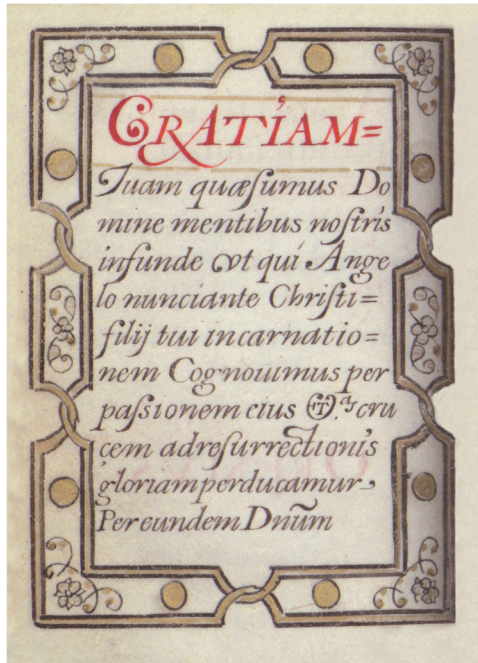 GRATIAM=
Tuam quæsumus Do
mine mentibus noſtris
infunde vt qui Ange
lo nunciante Chriſti=
filij tui incarnatio=
nem Cognouimus per
paſsionem eius et cru
cem adreſurrectionis
gloriam perducamur
Per eundem Dnũm